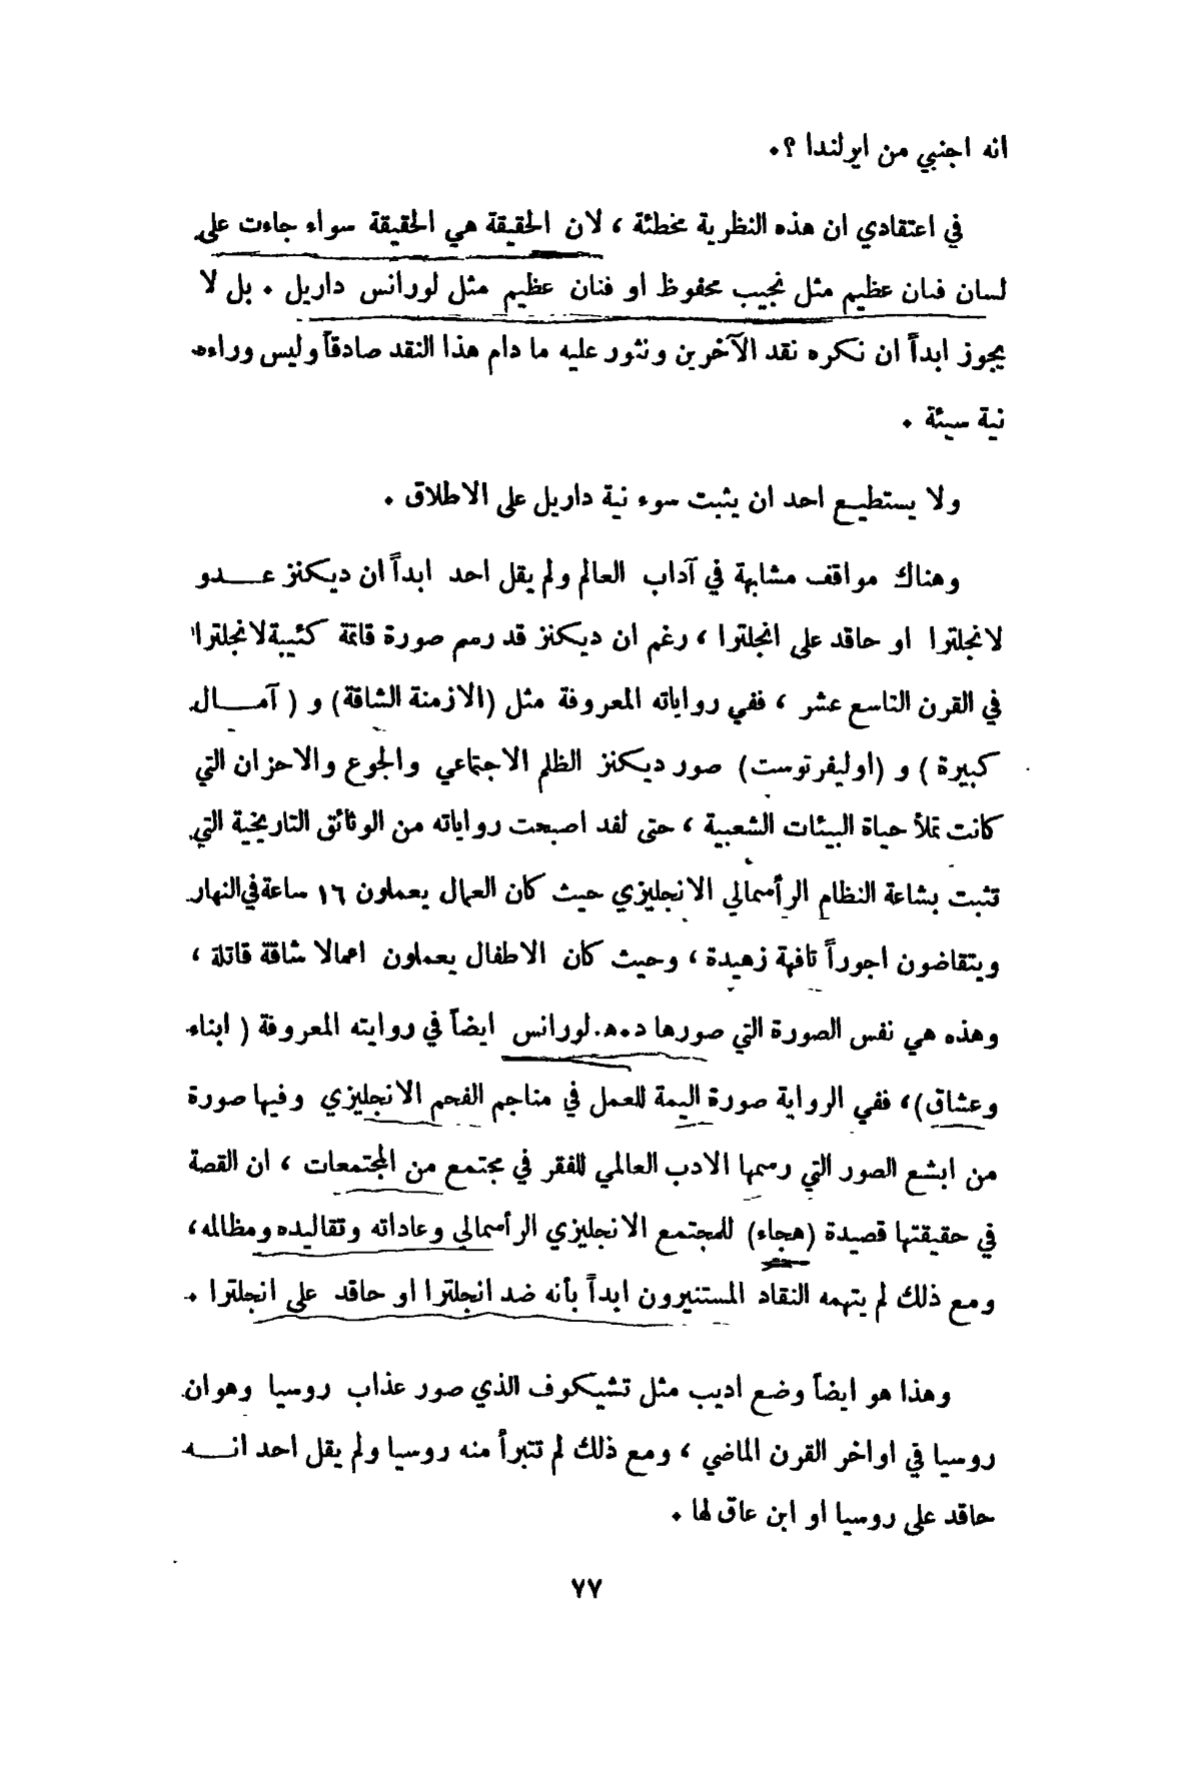 انه اجنبي من ايرلندا ؟.
في اعتقادي ان هذه النظرية مخطئة ، لان الحقيقة هي الحقيقة سواء جاءت على
لسان فنان عظيم مثل نجيب محفوظ او فنان عظيم مثل لورانس داريل . بل لا
يجوز ابداً ان نكره نقد الآخرين ونثور عليه ما دام هذا النقد صادقاً وليس وراءه
نية سيئة .
ولا يستطيع احد ان يثبت سوء نية داريل على الاطلاق .
وهناك مواقف مشابهة في آداب العالم ولم يقل احد ابداً ان ديكنز عـــدو
لانجلترا او حاقد على انجلترا ، رغم ان ديكنز قد رسم صورة قاتمة كئيبة لانجلترا
في القرن التاسع عشر ، ففي رواياته المعروفة مثل (الازمنة الشاقة) و ( آمـــال
كبيرة ) و (اوليفرتوست) صور ديكنز الظلم الاجتماعي والجوع والاحزان التي
كانت تملأ حياة البيئات الشعبية ، حتى لقد اصبحت رواياته من الوثائق التاريخية التي
تثبت بشاعة النظام الرأسمالي الانجليزي حيث كان العمال يعملون ١٦ ساعة في النهار
ويتقاضون اجوراً تافهة زهيدة ، وحيث كان الاطفال يعملون اعمالا شاقة قاتلة ،
وهذه هي نفس الصورة التي صورها د.هـ.لورانس ايضاً في روايته المعروفة ( ابناء
وعشاق)، ففي الرواية صورة اليمة للعمل في مناجم الفحم الانجليزي وفيها صورة
من ابشع الصور التي رسمها الادب العالمي للفقر في مجتمع من المجتمعات ، ان القصة
في حقيقتها قصيدة (هجاء) للمجتمع الانجليزي الرأسمالي وعاداته وتقاليده ومظالمه،
ومع ذلك لم يتهمه النقاد المستنيرون ابداً بأنه ضد انجلترا او حاقد على انجلترا .
وهذا هو ايضاً وضع اديب مثل تشيكوف الذي صور عذاب روسيا وهوان
روسيا في اواخر القرن الماضي ، ومع ذلك لم تتبرأ منه روسيا ولم يقل احد انـــه
حاقد على روسيا او ابن عاق لها .
٧٧